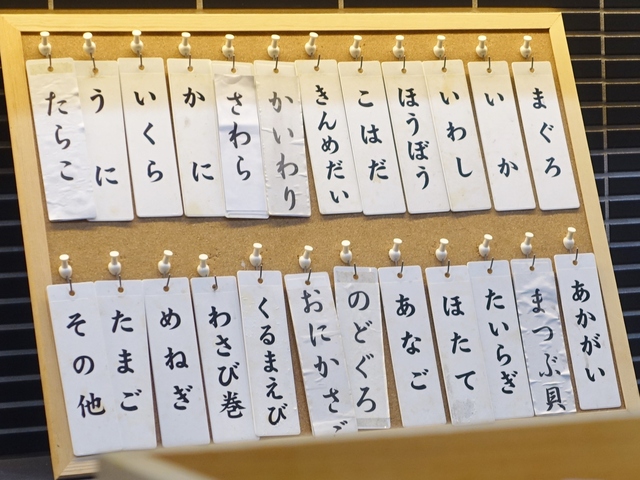 まぐろ
いか
いわし
ほうぼう
こはだ
きんめだい
かいわり
さわら
かに
いくら
うに
たらこ
あかがい
まつぶ貝
たいらぎ
ほたて
あなご
のどぐろ
おにかさご
くるまえび
わさび巻
めねぎ
たまご
その他